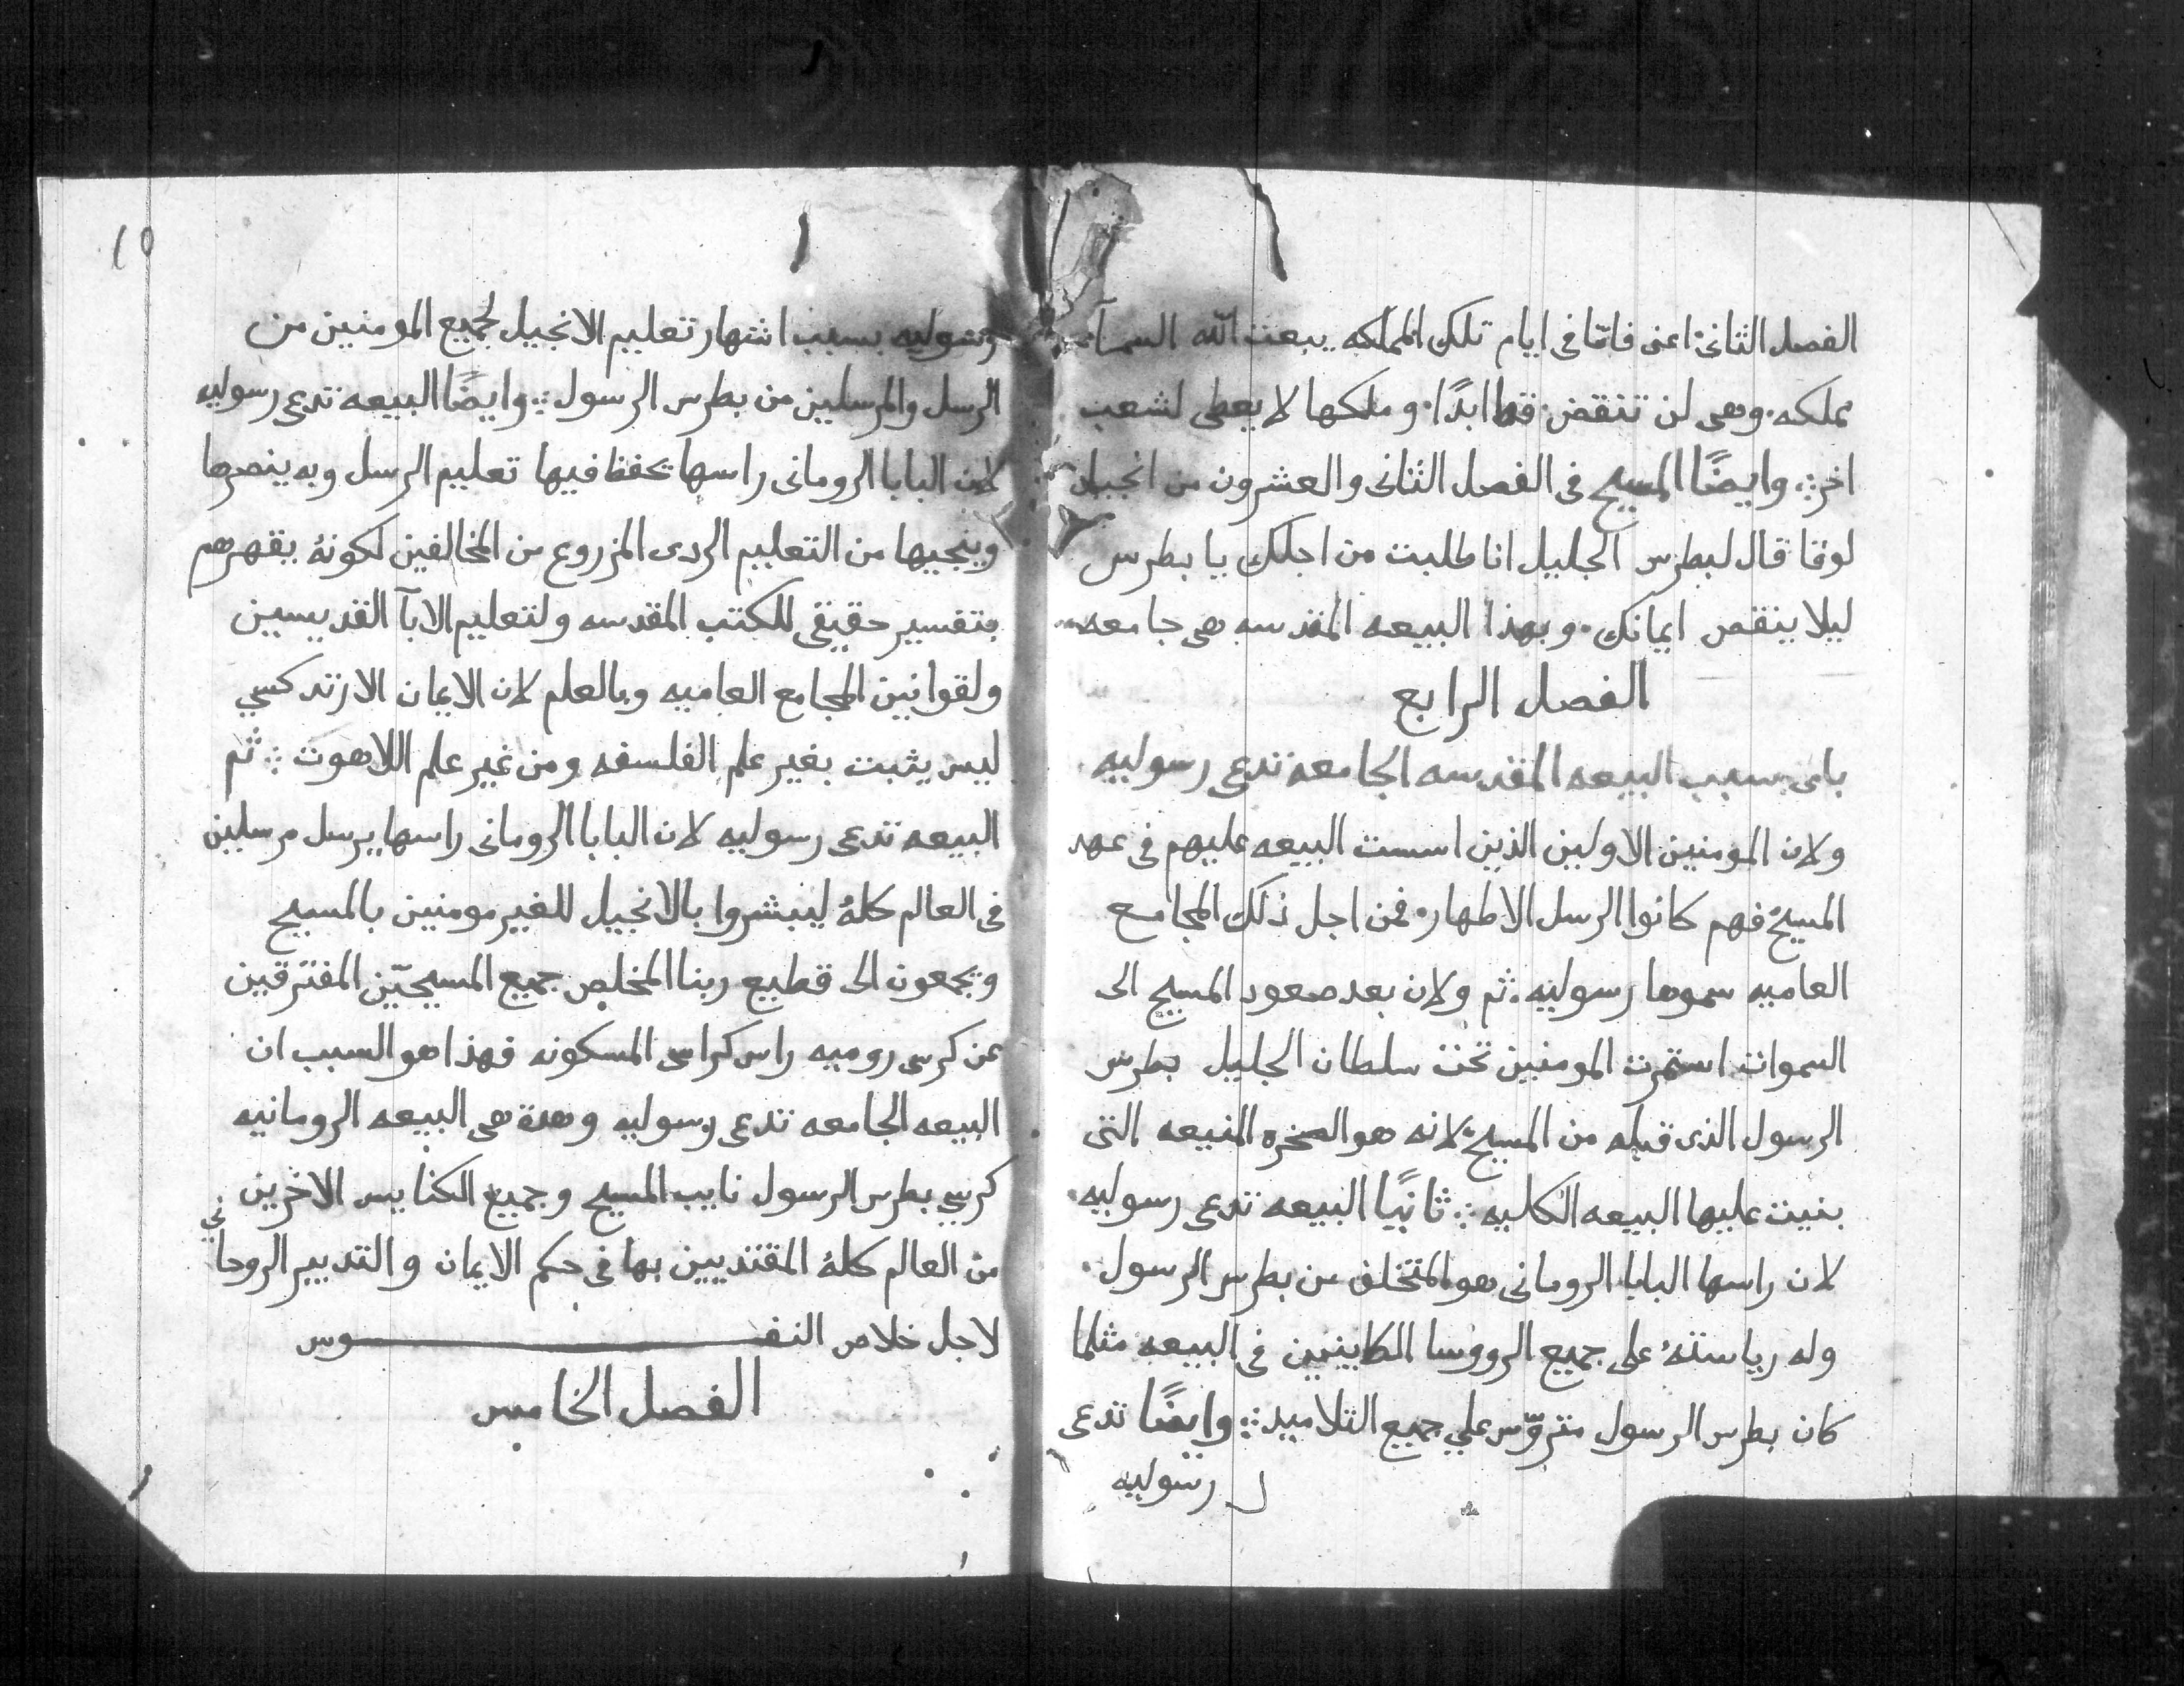 الفصل الثانى اعنى فامّا فى ايام تلك المملكه يبعت الله السمآ
مملكه. وهى لن تنقض قط ابدًا. وملكها لا يعطى لشعب
اخر ⁘ وايضًا المسيح فى الفصل الثانى والعشرون من انجيل
لوقا قال لبطرس الجليل انا طلبت من اجلك يا بطرس
ليلا ينقص ايمانك. وبهذا البيعه المقدسه هى جامعه
الفصل الرابع
باى سبب البيعه المقدسه الجامعه تدعى رسوليه
ولان المومنين الاولين الذين اسست البيعه عليهم فى عهد
المسيح فهم كانوا الرسل الاطهار. فمن اجل ذلك المجامع
العاميه سموها رسوليه. ثم ولان بعد صعود المسيح الى
السموات استمرت المومنين تحت سلطان الجليل بطرس
الرسول الذى قبله من المسيح لانه هو الصخره المنيعه التى
بنيت عليها البيعه الكليه ⁘ ثانيًا البيعه تدعى رسوليه.
لان راسها البابا الرومانى هو المتخلف عن بطرس الرسول.
وله رياستهُ على جميع الرووسا الكاينين فى البيعه مثلما
كان بطرس الرسول متروّس علي جميع التلاميد ⁘ وايضًا تدعى
رسوليه
١٥
رسوليه بسبب اشتهار تعليم الانجيل لجميع المومنين من
الرسل والمرسلين من بطرس الرسول ⁘ وايضًا البيعه تدعى رسوليه
لان البابا الرومانى راسها تحفظ فيها تعليم الرسل وبه ينصرها
وينجيها من التعليم الردى المزروع من المخالفين لكونهُ يقهرهم
بتفسير حقيقى للكتب المقدسه ولتعليم الابآ القديسين
ولقوانين المجامع العاميه وبالعلم لان الايمان الارتدكسي
ليس يثبت بغير علم الفلسفه ومن غير علم اللاهوت ⁘ ثم
البيعه تدعى رسوليه لان البابا الرومانى راسها يرسل مرسلين
فى العالم كلهُ ليبشروا بالانجيل للغير مومنين بالمسيح
ويجمعون الى قطيع ربنا المخلص جميع المسيحيّن المفترقين
عن كرسى روميه راس كراسى المسكونه فهذا هو السبب ان
البيعه الجامعه تدعى رسوليه وهده هى البيعه الرومانيه
كرسي بطرس الرسول نايب المسيح وجميع الكنايس الاخرين
من العالم كلهُ المقتديين بها فى حكم الايمان والتدبير الروحاني
لاجل خلاص النفـــوس
الفصل الخامس